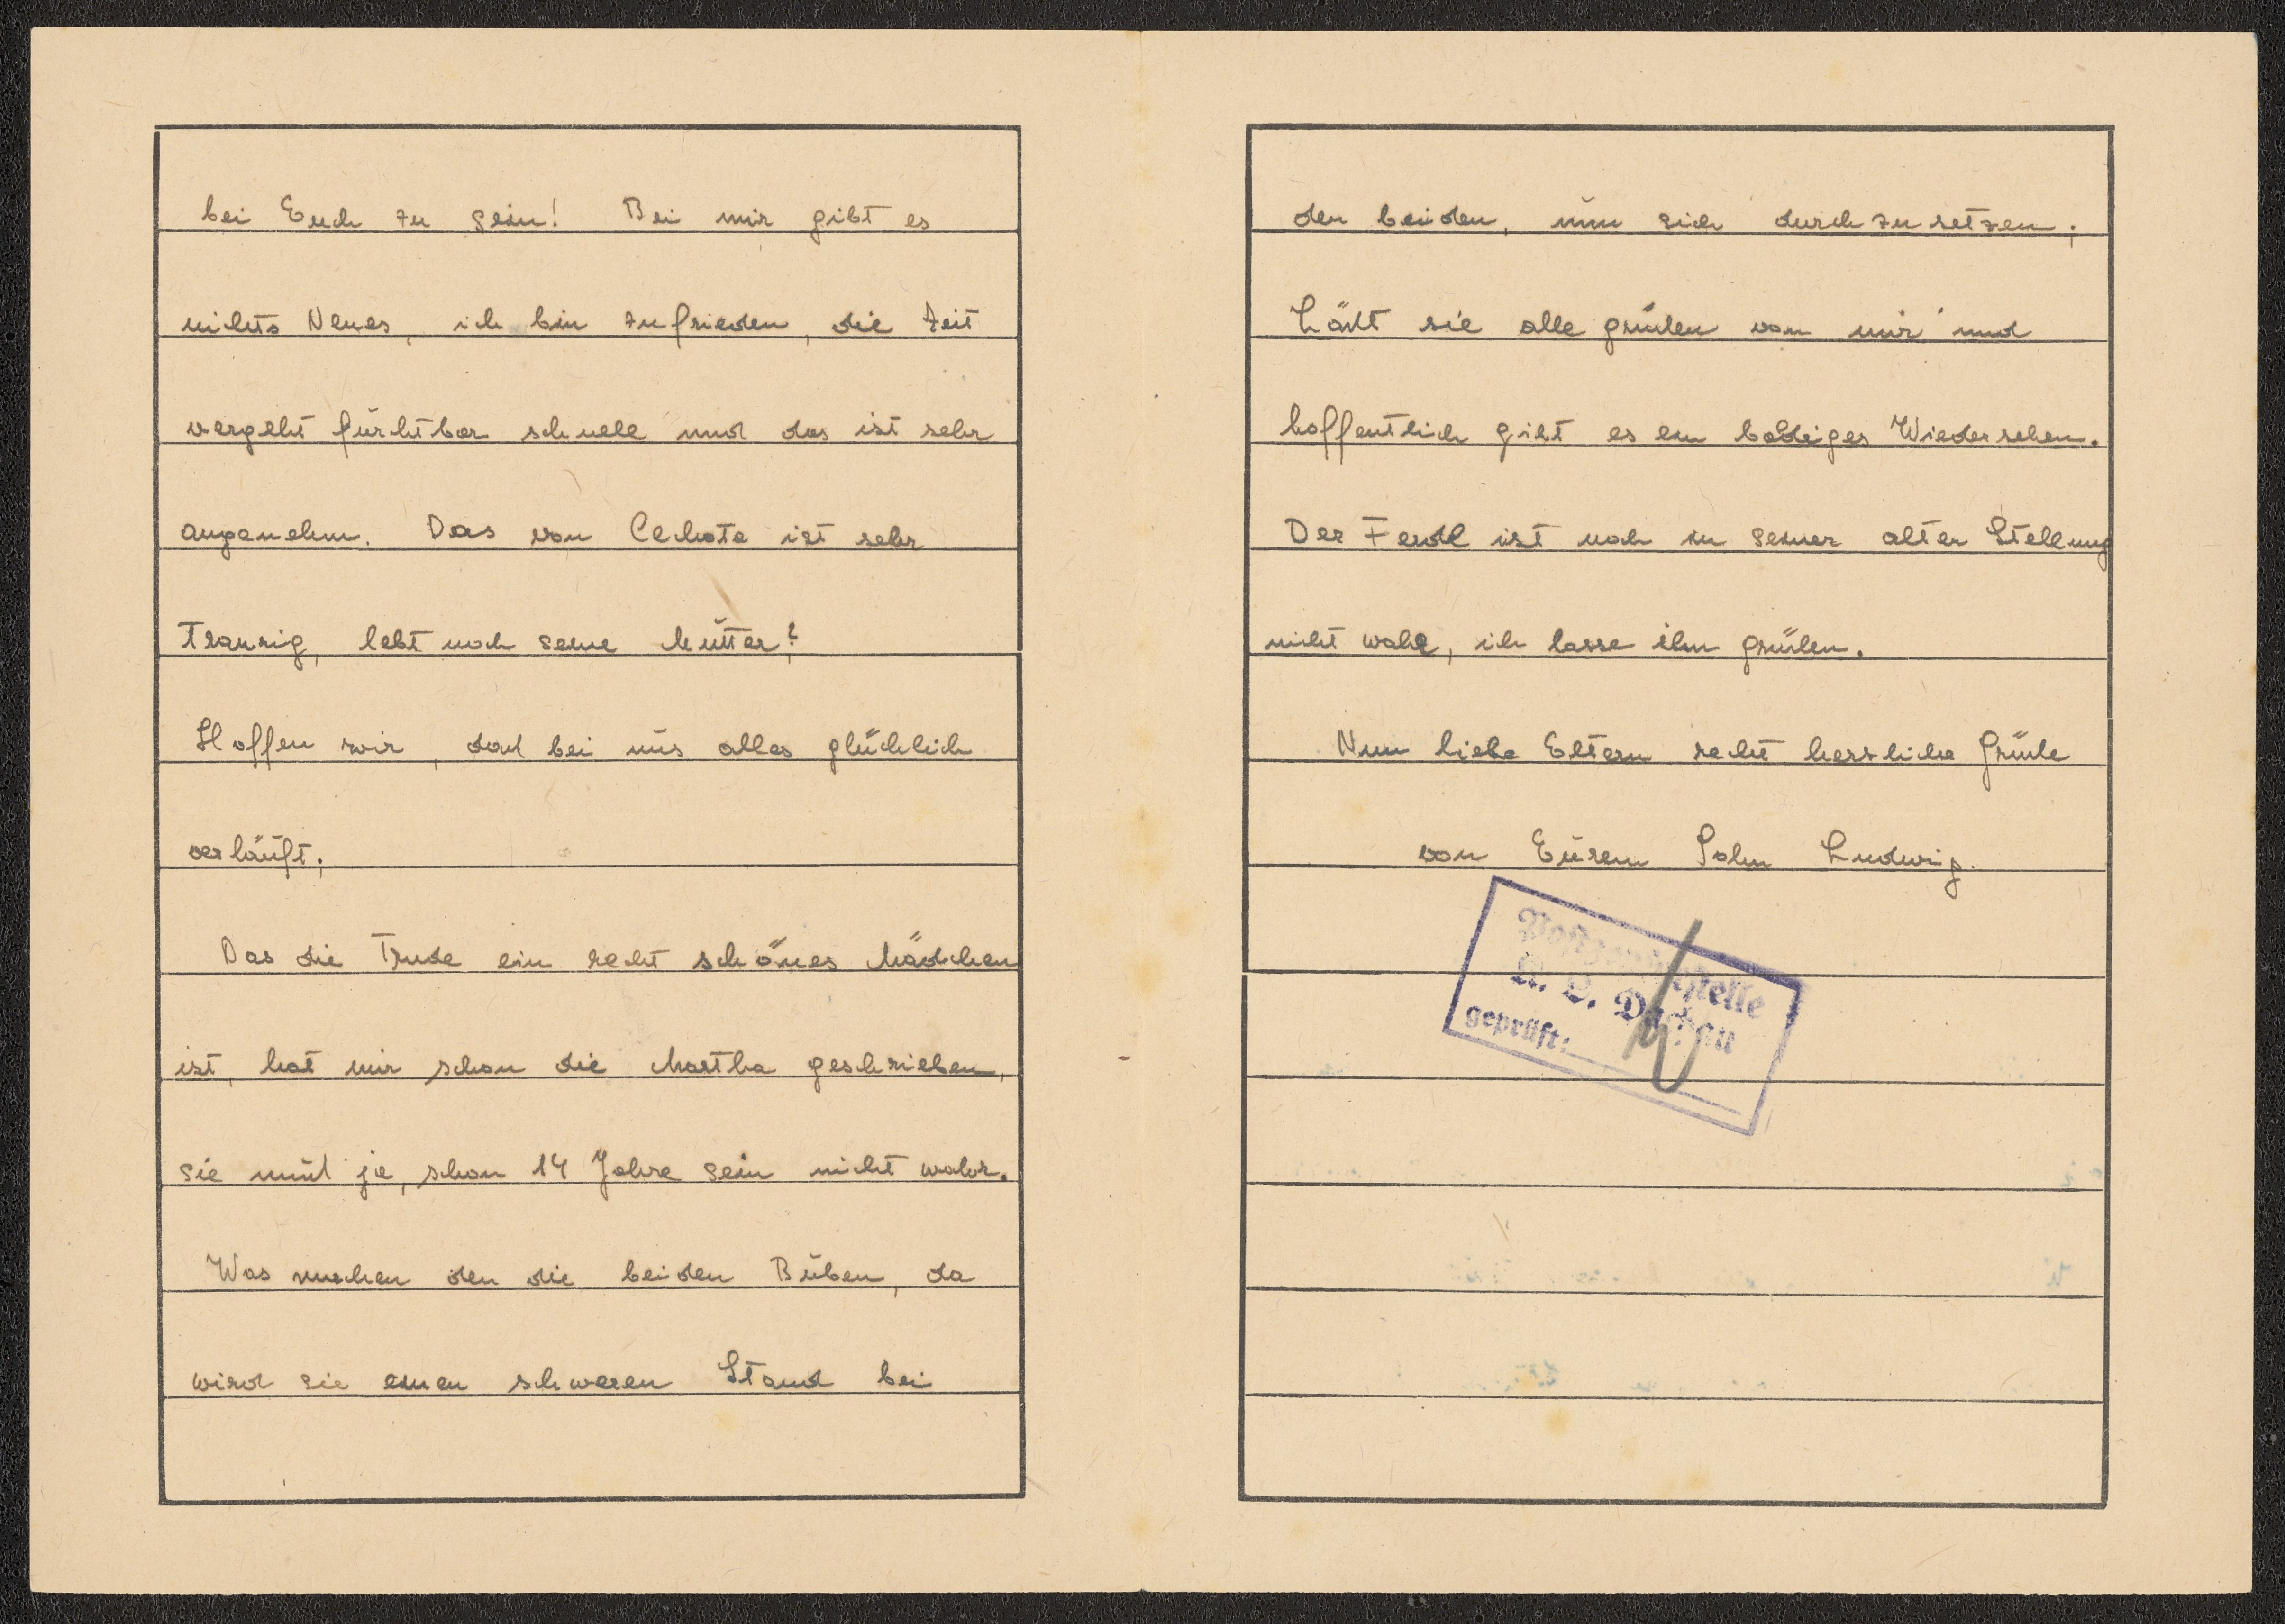 bei Euch zu sein! Bei mir gibt es
nichts Neues, ich bin zufrieden, die Zeit
vergeht fürchtbar schnell und das ist sehr
angenehm. Das von Cechota ist sehr
Traurig, lebt noch seine Mutter?
Hoffen wir, daß bei uns alles glücklich
verläuft.
Das die Trude ein recht schönes Mädchen
ist, hat mir schon die Martha geschrieben,
sie muß ja, schon 14 Jahre sein nicht wahr.
Was machen den die beiden Buben, da
wird sie einen schweren Stand bei
den beiden, um sich durch zu setzen;
Läßt sie alle grüßen von mir und
hoffentlich gibt es ein baldiges Wiedersehen.
Der Ferdl ist noch in seiner alter Stellung
nicht wahr, ich lasse ihm grüßen.
Nun liebe Eltern recht herzliche Grüße
von Eurem Sohn Ludwig.
Postzensurstelle
K. L. Dachau
geprüft: